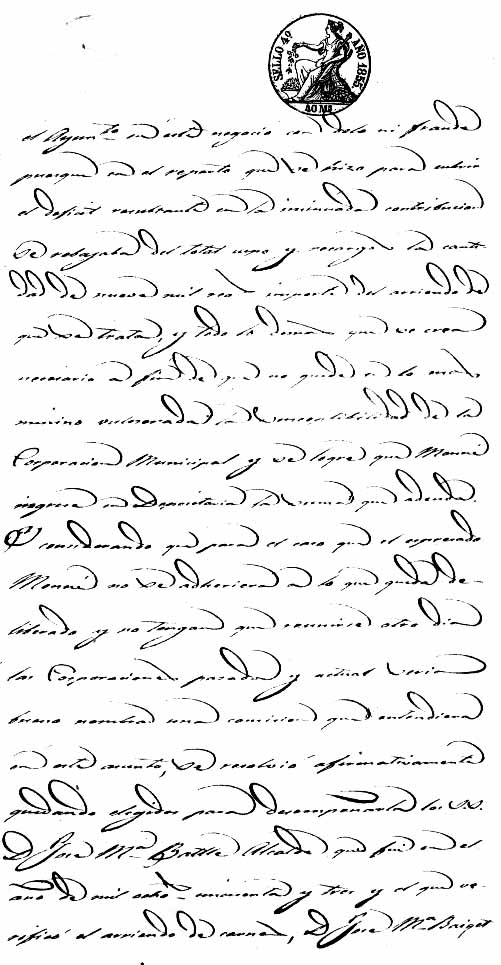 SELLO 4º AÑO 1855.
40 Ms
el Ayunto. en este negocio con dolo ni fraude
porque en el reparto que se hizo para cubrir
el deficit resultante en la insinuada contribucion
se rebajaba del total cupo y recargos la canti-
dad de nueve mil rs. importe del arriendo de
que se trata, y todo lo demas que se crea
necesario a fin de que no quede en lo mas
minimo vulnerada la susceptibilidad de la
Corporacion Municipal y se logre que Moncú
ingrese en Depositaria la suma que adeuda.
Y considerando que para el caso que el espresado
Moncú no se adheriera a lo que queda de-
liberado y no tengan que reunirse otro dia
las Corporaciones pasada y actual seria
bueno nombrar una comision que entendiera
en este asunto, se resolvió afirmativamente
quedando elegidos para desempeñarla los S.S.
D. Jose Ma. Batlle Alcalde que fué en el
año de mil ocho- cincuenta y tres y el que ve-
rificó el arriendo de carnes, D. Jose Ma. Baiget